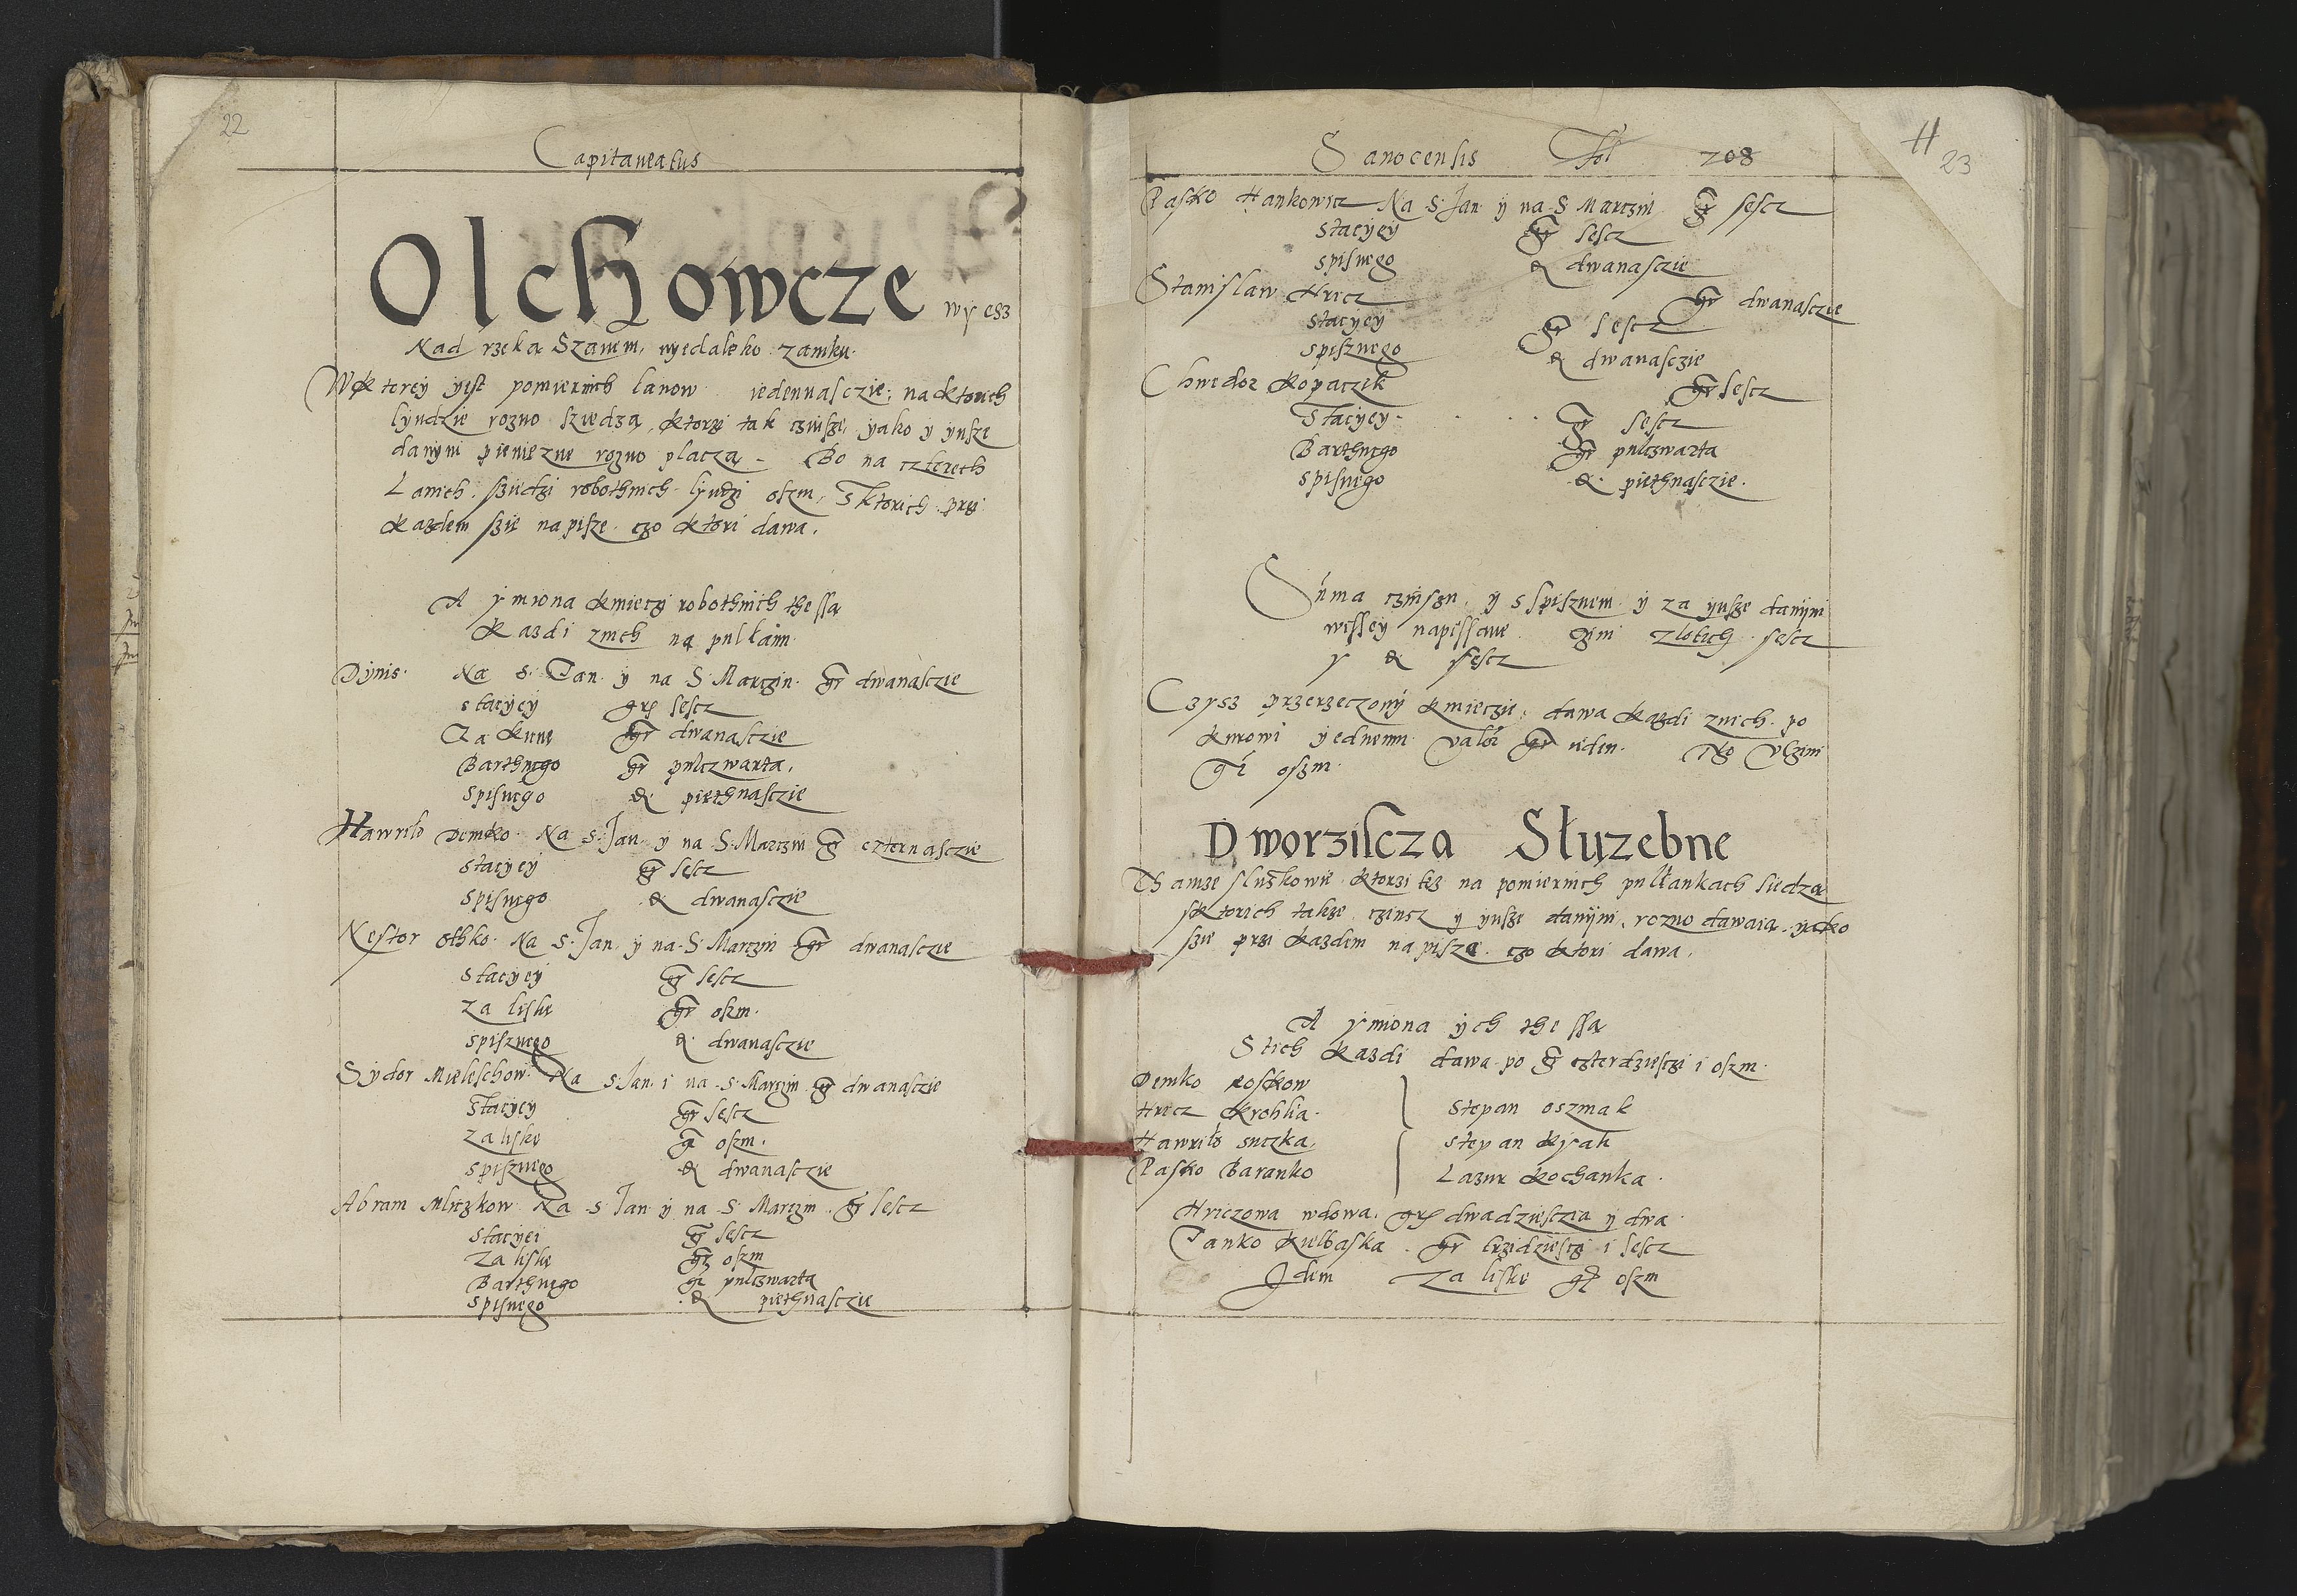 22
Capitaneatus
Olchowcze wyesz
Nad rzeka Szanem, nyedaleko zamku.
Wktorey yest pomiernich lanow iedennasczie: na ktorich
lyudzie rozno siedzą, ktorzi tak czinsze, yako y ynsze
daniny pieniezne rozno placzą. Bo na czterech
Lanich, siedzi robothnich lyudzi osm, S ktorich przi
kazdem szie napisze czo ktori dawa.
A ymiona kmieczi robothnich the ssą
kazdi znich na pullanin
Dynis. Na S. Jan y na S. Marczin gr dwanasczie
staczyey gr sescz
Za kune gr dwanasczie
Barthnego gr pulczwarta.
Spisnego d. piethnasczie
Hawrilo Demko. Na S. Jan. y na S. Marczin gr czternasczie
staczyey gr sescz
Spisnego d dwanasczie
Nestor Othko. Na S. Jan y na S. Marczin gr dwanasczie
Staczyey gr sescz
Za liske gr osm.
spisznego d. dwanasczie
Sydor Mieleschow. Na S. Jan i na S. Marczin gr dwanasczie
Staczyey gr sescz
Za liske gr osm.
Spisznego d dwanasczie
Abram Mliczkow Na S Jan y na S. Marczin gr sescz
Staczyei gr sescz
Za liske gr osm
Barthnego gr pulczwarta
Spisnego d piethnasczie
Sanocensis Fol 208
H
23
Pasko Hankowicz Na S. Jan y na S Marczin gr sescz
Staczyey gr sescz
Spisnego d dwanasczie
Stanislaw Hricz gr dwanasczie
Staczyey gr sescz
spisznego d dwanasczie
Chwedor Kopaczik gr sescz
Staczyey gr sescz
Barthnego gr pulczwarta
Spisnego d. piethnasczie.
Suma czinszu, y s spisznem y za ynsze daniny
wissey napissane czini zlotich sescz
y d sescz
Czysz przerzeczony kmieczie, dawa kazdi znich po
kurowi yednemu valor gr ieden. To Uczini
gr oszm.
Dworziscza Służebne
Thamze sluzkowie ktorzi tez na pomiernich pullankach siedzą
sktorich takze czinsz y ynsze daniny, rozno dawaią, yako
szie przi kazdem napisze. czo ktori dawa.
A ymiona ych the ssą
S tich kazdi dawa po gr czterdziesczi i osm.
Demko Roskow
Hricz Krohlia. Stepan Oszmak
Hawrilo Suczka. Stepan Kysak
Pasko Baranko Lazur Kochanka.
Hriczowa wdowa. gr dwadziesczia y dwa
Janko Kielbaska. gr trzidziesczi i sescz
Idem Za liske gr osm